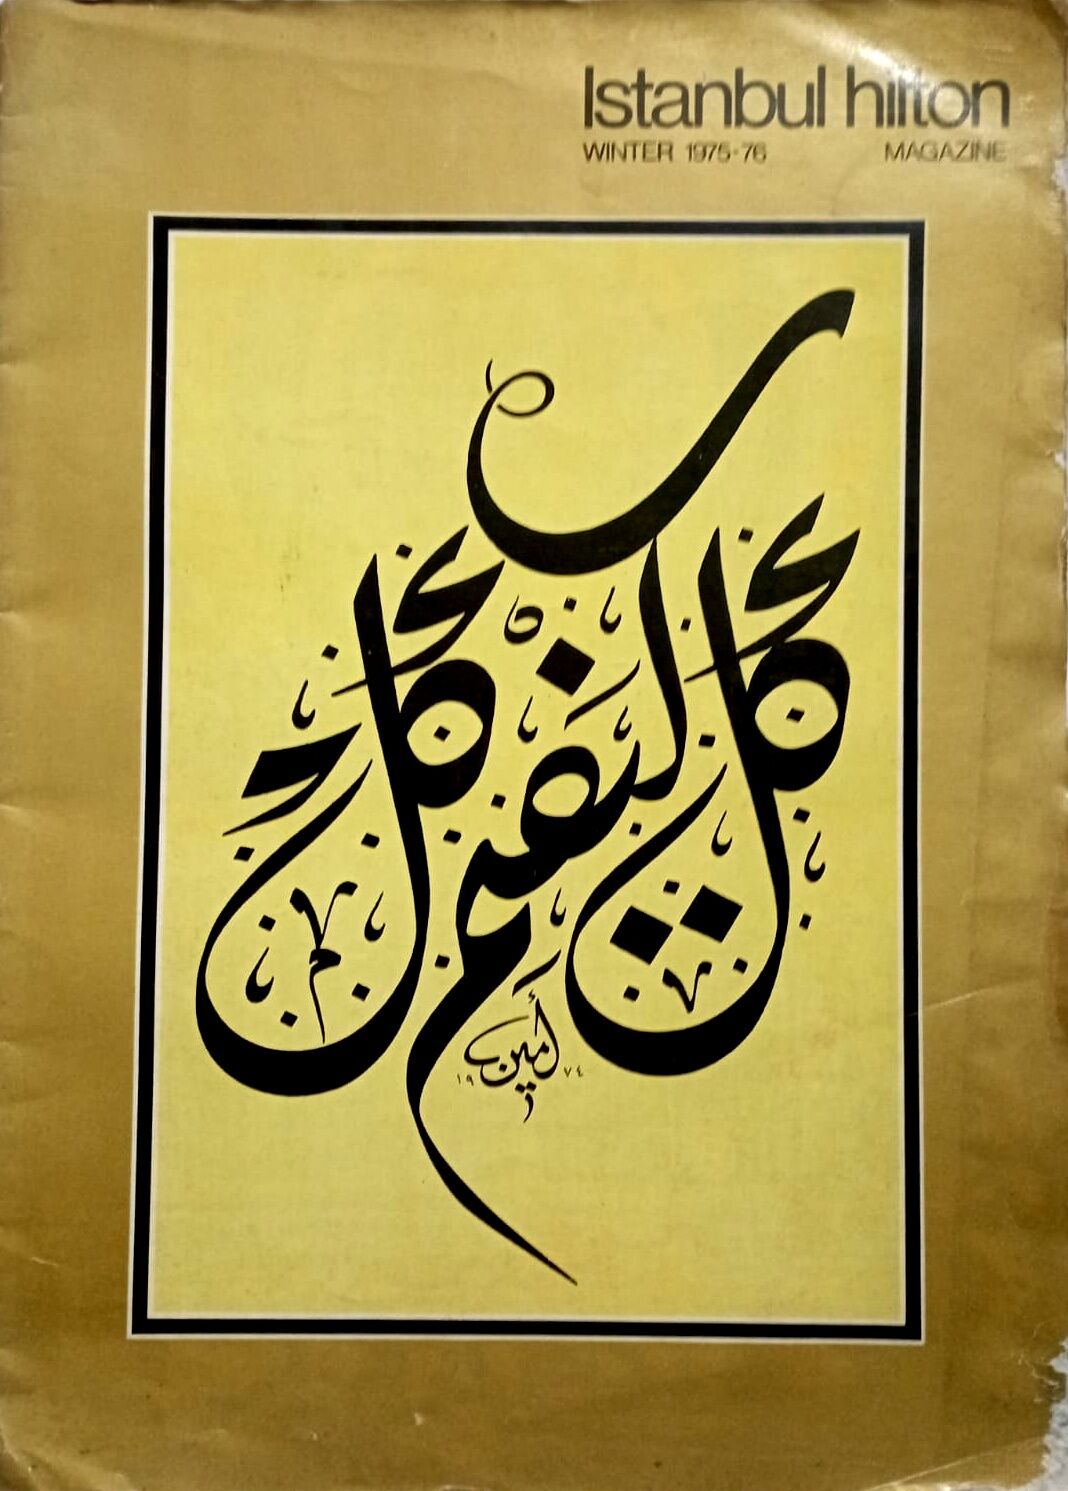 Istanbul hilton
WINTER 1975-76 MAGAZINE
كل كيفم كل
أمين
١٩٧٤